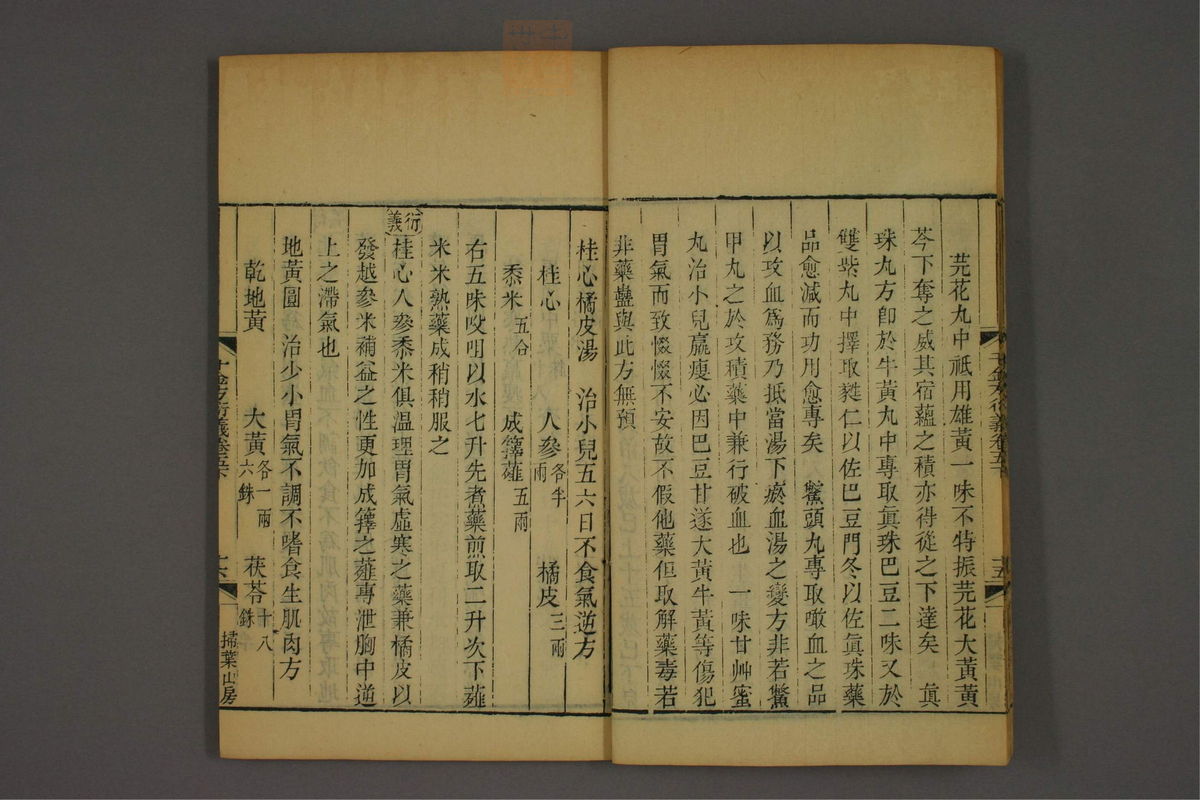 芫花丸中祇用雄黃一味不特振芫花大黃黃
芩下奪之威其宿蘊之積亦得從之下達矣　眞
珠丸方卽於牛黃丸中專取眞珠巴豆二味又於
雙紫丸中擇取蕤仁以佐巴豆門冬以佐眞珠藥
品愈減而功用愈專矣　鱉頭丸專取噉血之品
以攻血爲務乃抵當湯下瘀血湯之變方非若鱉
甲丸之於攻積藥中兼行破血也　一味甘艸蜜
丸治小兒羸瘦必因巴豆甘遂大黃牛黃等傷犯
胃氣而致惙惙不安故不假他藥但取解藥毒若
非藥蠱與此方無預
千金方衍義卷五下
十五
桂心橘皮湯　治小兒五六日不食氣逆方
桂心　人參各半兩　橘皮三兩
黍米五合　成籜薤五兩
右五味㕮咀以水七升先煮藥煎取二升次下薤
米米熟藥成稍稍服之
衍義
桂心人參黍米俱溫理胃氣虛寒之藥兼橘皮以
發越參米補益之性更加成籜之薤專泄胸中逆
上之滯氣也
地黃圓　治少小胃氣不調不嗜食生肌肉方
乾地黃　大黃各一兩六銖　茯苓十八銖
千金方衍義卷五下
十六
掃葉山房